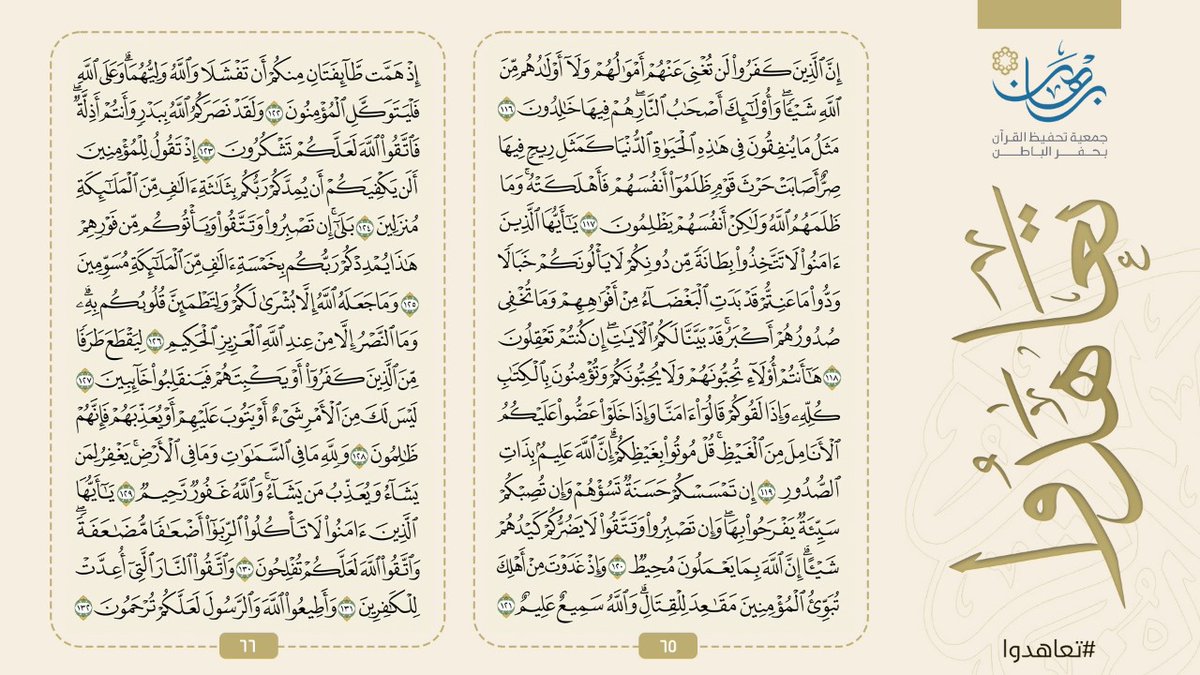 برهان
جمعية تحفيظ القرآن
بحفر الباطن
تعاهدوا
#تعاهدوا
إِنَّ ٱلَّذِينَ كَفَرُوا۟ لَن تُغْنِىَ عَنْهُمْ أَمْوَٰلُهُمْ وَلَآ أَوْلَٰدُهُم مِّنَ
ٱللَّهِ شَيْـًٔا ۖ وَأُو۟لَٰٓئِكَ أَصْحَٰبُ ٱلنَّارِ ۚ هُمْ فِيهَا خَٰلِدُونَ ١١٦
مَثَلُ مَا يُنفِقُونَ فِى هَٰذِهِ ٱلْحَيَوٰةِ ٱلدُّنْيَا كَمَثَلِ رِيحٍ فِيهَا
صِرٌّ أَصَابَتْ حَرْثَ قَوْمٍ ظَلَمُوٓا۟ أَنفُسَهُمْ فَأَهْلَكَتْهُ ۚ وَمَا
ظَلَمَهُمُ ٱللَّهُ وَلَٰكِنْ أَنفُسَهُمْ يَظْلِمُونَ ١١٧ يَٰٓأَيُّهَا ٱلَّذِينَ
ءَامَنُوا۟ لَا تَتَّخِذُوا۟ بِطَانَةً مِّن دُونِكُمْ لَا يَأْلُونَكُمْ خَبَالًا
وَدُّوا۟ مَا عَنِتُّمْ قَدْ بَدَتِ ٱلْبَغْضَآءُ مِنْ أَفْوَٰهِهِمْ وَمَا تُخْفِى
صُدُورُهُمْ أَكْبَرُ ۚ قَدْ بَيَّنَّا لَكُمُ ٱلْـَٔايَٰتِ ۖ إِن كُنتُمْ تَعْقِلُونَ
١١٨ هَٰٓأَنتُمْ أُو۟لَآءِ تُحِبُّونَهُمْ وَلَا يُحِبُّونَكُمْ وَتُؤْمِنُونَ بِٱلْكِتَٰبِ
كُلِّهِۦ وَإِذَا لَقُوكُمْ قَالُوٓا۟ ءَامَنَّا وَإِذَا خَلَوْا۟ عَضُّوا۟ عَلَيْكُمُ
ٱلْأَنَامِلَ مِنَ ٱلْغَيْظِ ۚ قُلْ مُوتُوا۟ بِغَيْظِكُمْ ۗ إِنَّ ٱللَّهَ عَلِيمٌۢ بِذَاتِ
ٱلصُّدُورِ ١١٩ إِن تَمْسَسْكُمْ حَسَنَةٌ تَسُؤْهُمْ وَإِن تُصِبْكُمْ
سَيِّئَةٌ يَفْرَحُوا۟ بِهَا ۖ وَإِن تَصْبِرُوا۟ وَتَتَّقُوا۟ لَا يَضُرُّكُمْ كَيْدُهُمْ
شَيْـًٔا ۗ إِنَّ ٱللَّهَ بِمَا يَعْمَلُونَ مُحِيطٌ ١٢٠ وَإِذْ غَدَوْتَ مِنْ أَهْلِكَ
تُبَوِّئُ ٱلْمُؤْمِنِينَ مَقَٰعِدَ لِلْقِتَالِ ۗ وَٱللَّهُ سَمِيعٌ عَلِيمٌ ١٢١
٦٥
إِذْ هَمَّت طَّآئِفَتَانِ مِنكُمْ أَن تَفْشَلَا وَٱللَّهُ وَلِيُّهُمَا ۗ وَعَلَى ٱللَّهِ
فَلْيَتَوَكَّلِ ٱلْمُؤْمِنُونَ ١٢٢ وَلَقَدْ نَصَرَكُمُ ٱللَّهُ بِبَدْرٍ وَأَنتُمْ أَذِلَّةٌ ۖ
فَٱتَّقُوا۟ ٱللَّهَ لَعَلَّكُمْ تَشْكُرُونَ ١٢٣ إِذْ تَقُولُ لِلْمُؤْمِنِينَ
أَلَن يَكْفِيَكُمْ أَن يُمِدَّكُمْ رَبُّكُم بِثَلَٰثَةِ ءَالَٰفٍ مِّنَ ٱلْمَلَٰٓئِكَةِ
مُنزَلِينَ ١٢٤ بَلَىٰٓ ۚ إِن تَصْبِرُوا۟ وَتَتَّقُوا۟ وَيَأْتُوكُم مِّن فَوْرِهِمْ
هَٰذَا يُمْدِدْكُمْ رَبُّكُم بِخَمْسَةِ ءَالَٰفٍ مِّنَ ٱلْمَلَٰٓئِكَةِ مُسَوِّمِينَ
١٢٥ وَمَا جَعَلَهُ ٱللَّهُ إِلَّا بُشْرَىٰ لَكُمْ وَلِتَطْمَئِنَّ قُلُوبُكُم بِهِۦ ۗ
وَمَا ٱلنَّصْرُ إِلَّا مِنْ عِندِ ٱللَّهِ ٱلْعَزِيزِ ٱلْحَكِيمِ ١٢٦ لِيَقْطَعَ طَرَفًا
مِّنَ ٱلَّذِينَ كَفَرُوٓا۟ أَوْ يَكْبِتَهُمْ فَيَنقَلِبُوا۟ خَآئِبِينَ ١٢٧
لَيْسَ لَكَ مِنَ ٱلْأَمْرِ شَىْءٌ أَوْ يَتُوبَ عَلَيْهِمْ أَوْ يُعَذِّبَهُمْ فَإِنَّهُمْ
ظَٰلِمُونَ ١٢٨ وَلِلَّهِ مَا فِى ٱلسَّمَٰوَٰتِ وَمَا فِى ٱلْأَرْضِ ۚ يَغْفِرُ لِمَن
يَشَآءُ وَيُعَذِّبُ مَن يَشَآءُ ۚ وَٱللَّهُ غَفُورٌ رَّحِيمٌ ١٢٩ يَٰٓأَيُّهَا
ٱلَّذِينَ ءَامَنُوا۟ لَا تَأْكُلُوا۟ ٱلرِّبَوٰٓا۟ أَضْعَٰفًا مُّضَٰعَفَةً ۖ
وَٱتَّقُوا۟ ٱللَّهَ لَعَلَّكُمْ تُفْلِحُونَ ١٣٠ وَٱتَّقُوا۟ ٱلنَّارَ ٱلَّتِىٓ أُعِدَّتْ
لِلْكَٰفِرِينَ ١٣١ وَأَطِيعُوا۟ ٱللَّهَ وَٱلرَّسُولَ لَعَلَّكُمْ تُرْحَمُونَ ١٣٢
٦٦